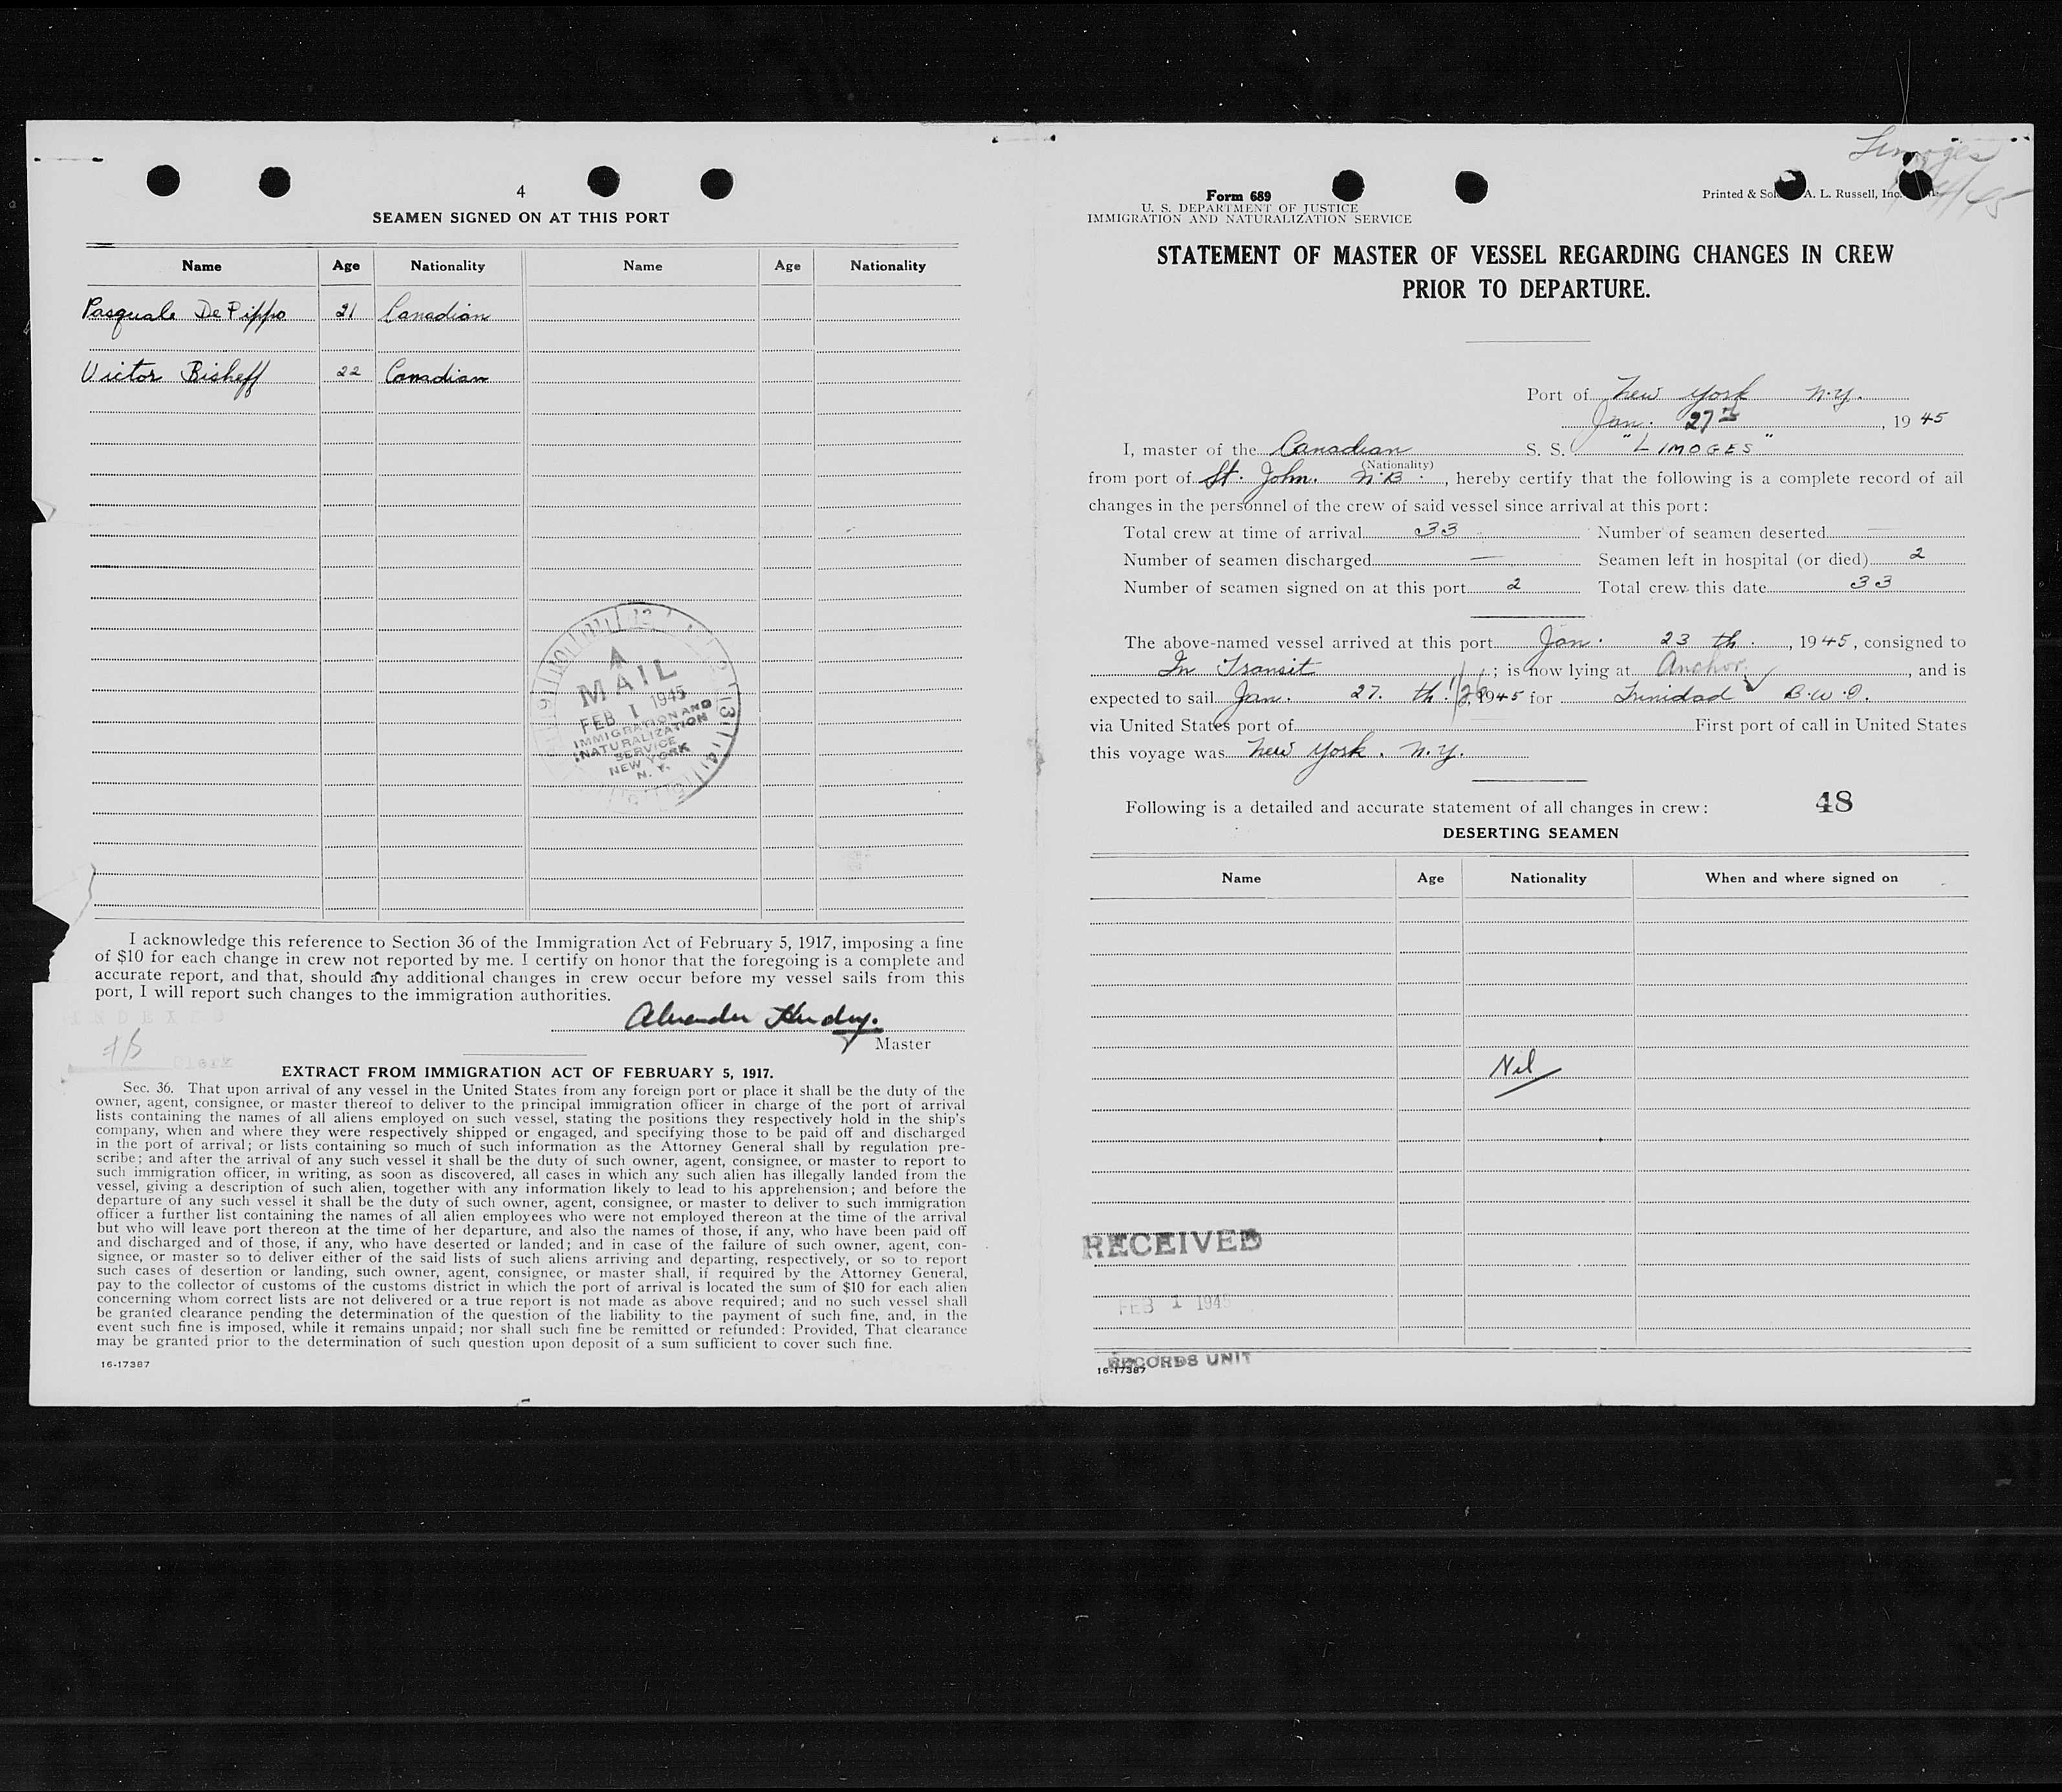 4
SEAMEN SIGNED ON AT THIS PORT
Name Age Nationality Name Age Nationality
Pasquale De Pippo 21 Canadian
Victor Bisheff 22 Canadian
MAIL
FEB 1 1945
IMMIGRATION AND
NATURALIZATION
SERVICE
NEW YORK
N. Y.
I acknowledge this reference to Section 36 of the Immigration Act of February 5, 1917, imposing a fine
of $10 for each change in crew not reported by me. I certify on honor that the foregoing is a complete and
accurate report, and that, should any additional changes in crew occur before my vessel sails from this
port, I will report such changes to the immigration authorities.
Alexander
Master
INDEXED
Clerk
EXTRACT FROM IMMIGRATION ACT OF FEBRUARY 5, 1917.
Sec. 36. That upon arrival of any vessel in the United States from any foreign port or place it shall be the duty of the
owner, agent, consignee, or master thereof to deliver to the principal immigration officer in charge of the port of arrival
lists containing the names of all aliens employed on such vessel, stating the positions they respectively hold in the ship's
company, when and where they were respectively shipped or engaged, and specifying those to be paid off and discharged
in the port of arrival; or lists containing so much of such information as the Attorney General shall by regulation pre-
scribe; and after the arrival of any such vessel it shall be the duty of such owner, agent, consignee, or master to report to
such immigration officer, in writing, as soon as discovered, all cases in which any such alien has illegally landed from the
vessel, giving a description of such alien, together with any information likely to lead to his apprehension; and before the
departure of any such vessel it shall be the duty of such owner, agent, consignee, or master to deliver to such immigration
officer a further list containing the names of all alien employees who were not employed thereon at the time of the arrival
but who will leave port thereon at the time of her departure, and also the names of those, if any, who have been paid off
and discharged and of those, if any, who have deserted or landed; and in case of the failure of such owner, agent, con-
signee, or master so to deliver either of the said lists of such aliens arriving and departing, respectively, or so to report
such cases of desertion or landing, such owner, agent, consignee, or master shall, if required by the Attorney General,
pay to the collector of customs of the customs district in which the port of arrival is located the sum of $10 for each alien
concerning whom correct lists are not delivered or a true report is not made as above required; and no such vessel shall
be granted clearance pending the determination of the question of the liability to the payment of such fine, and, in the
event such fine is imposed, while it remains unpaid; nor shall such fine be remitted or refunded: Provided, That clearance
may be granted prior to the determination of such question upon deposit of a sum sufficient to cover such fine.
16-17387
Limoges
Form 689
Printed & Sol A. L. Russell, Inc.
U. S. DEPARTMENT OF JUSTICE
IMMIGRATION AND NATURALIZATION SERVICE
STATEMENT OF MASTER OF VESSEL REGARDING CHANGES IN CREW
PRIOR TO DEPARTURE.
Port of New York N.Y.
Jan. 27th, 1945
I, master of the Canadian S. S. "LIMOGES"
(Nationality)
from port of St. John. N.B., hereby certify that the following is a complete record of all
changes in the personnel of the crew of said vessel since arrival at this port:
Total crew at time of arrival 33 Number of seamen deserted —
Number of seamen discharged — Seamen left in hospital (or died) 2
Number of seamen signed on at this port 2 Total crew this date 33
The above-named vessel arrived at this port Jan. 23 th., 1945, consigned to
In Transit; is now lying at Anchor, and is
expected to sail Jan. 27. th. 1/28, 1945 for Trinidad B.W.I.
via United States port of First port of call in United States
this voyage was New York. N.Y.
Following is a detailed and accurate statement of all changes in crew: 48
DESERTING SEAMEN
Name Age Nationality When and where signed on
Nil
RECEIVED
FEB 1 1945
RECORDS UNIT
16-17387